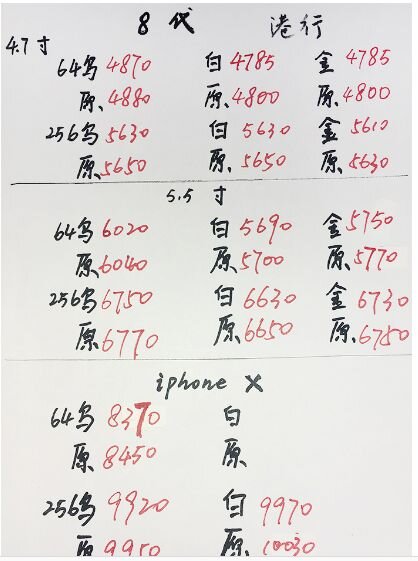 8代 港行
4.7寸
64乌 4870 白 4785 金 4785
原. 4880 原. 4800 原. 4800
256乌 5630 白 5630 金 5610
原. 5650 原. 5650 原. 5630
5.5寸
64乌 6020 白 5690 金 5750
原 6040 原 5700 原. 5770
256乌 6750 白 6630 金 6730
原 6770 原. 6650 原. 6750
iphone X
64乌 8370 白
原 8450 原
256乌 9920 白 9970
原 9950 原. 10030